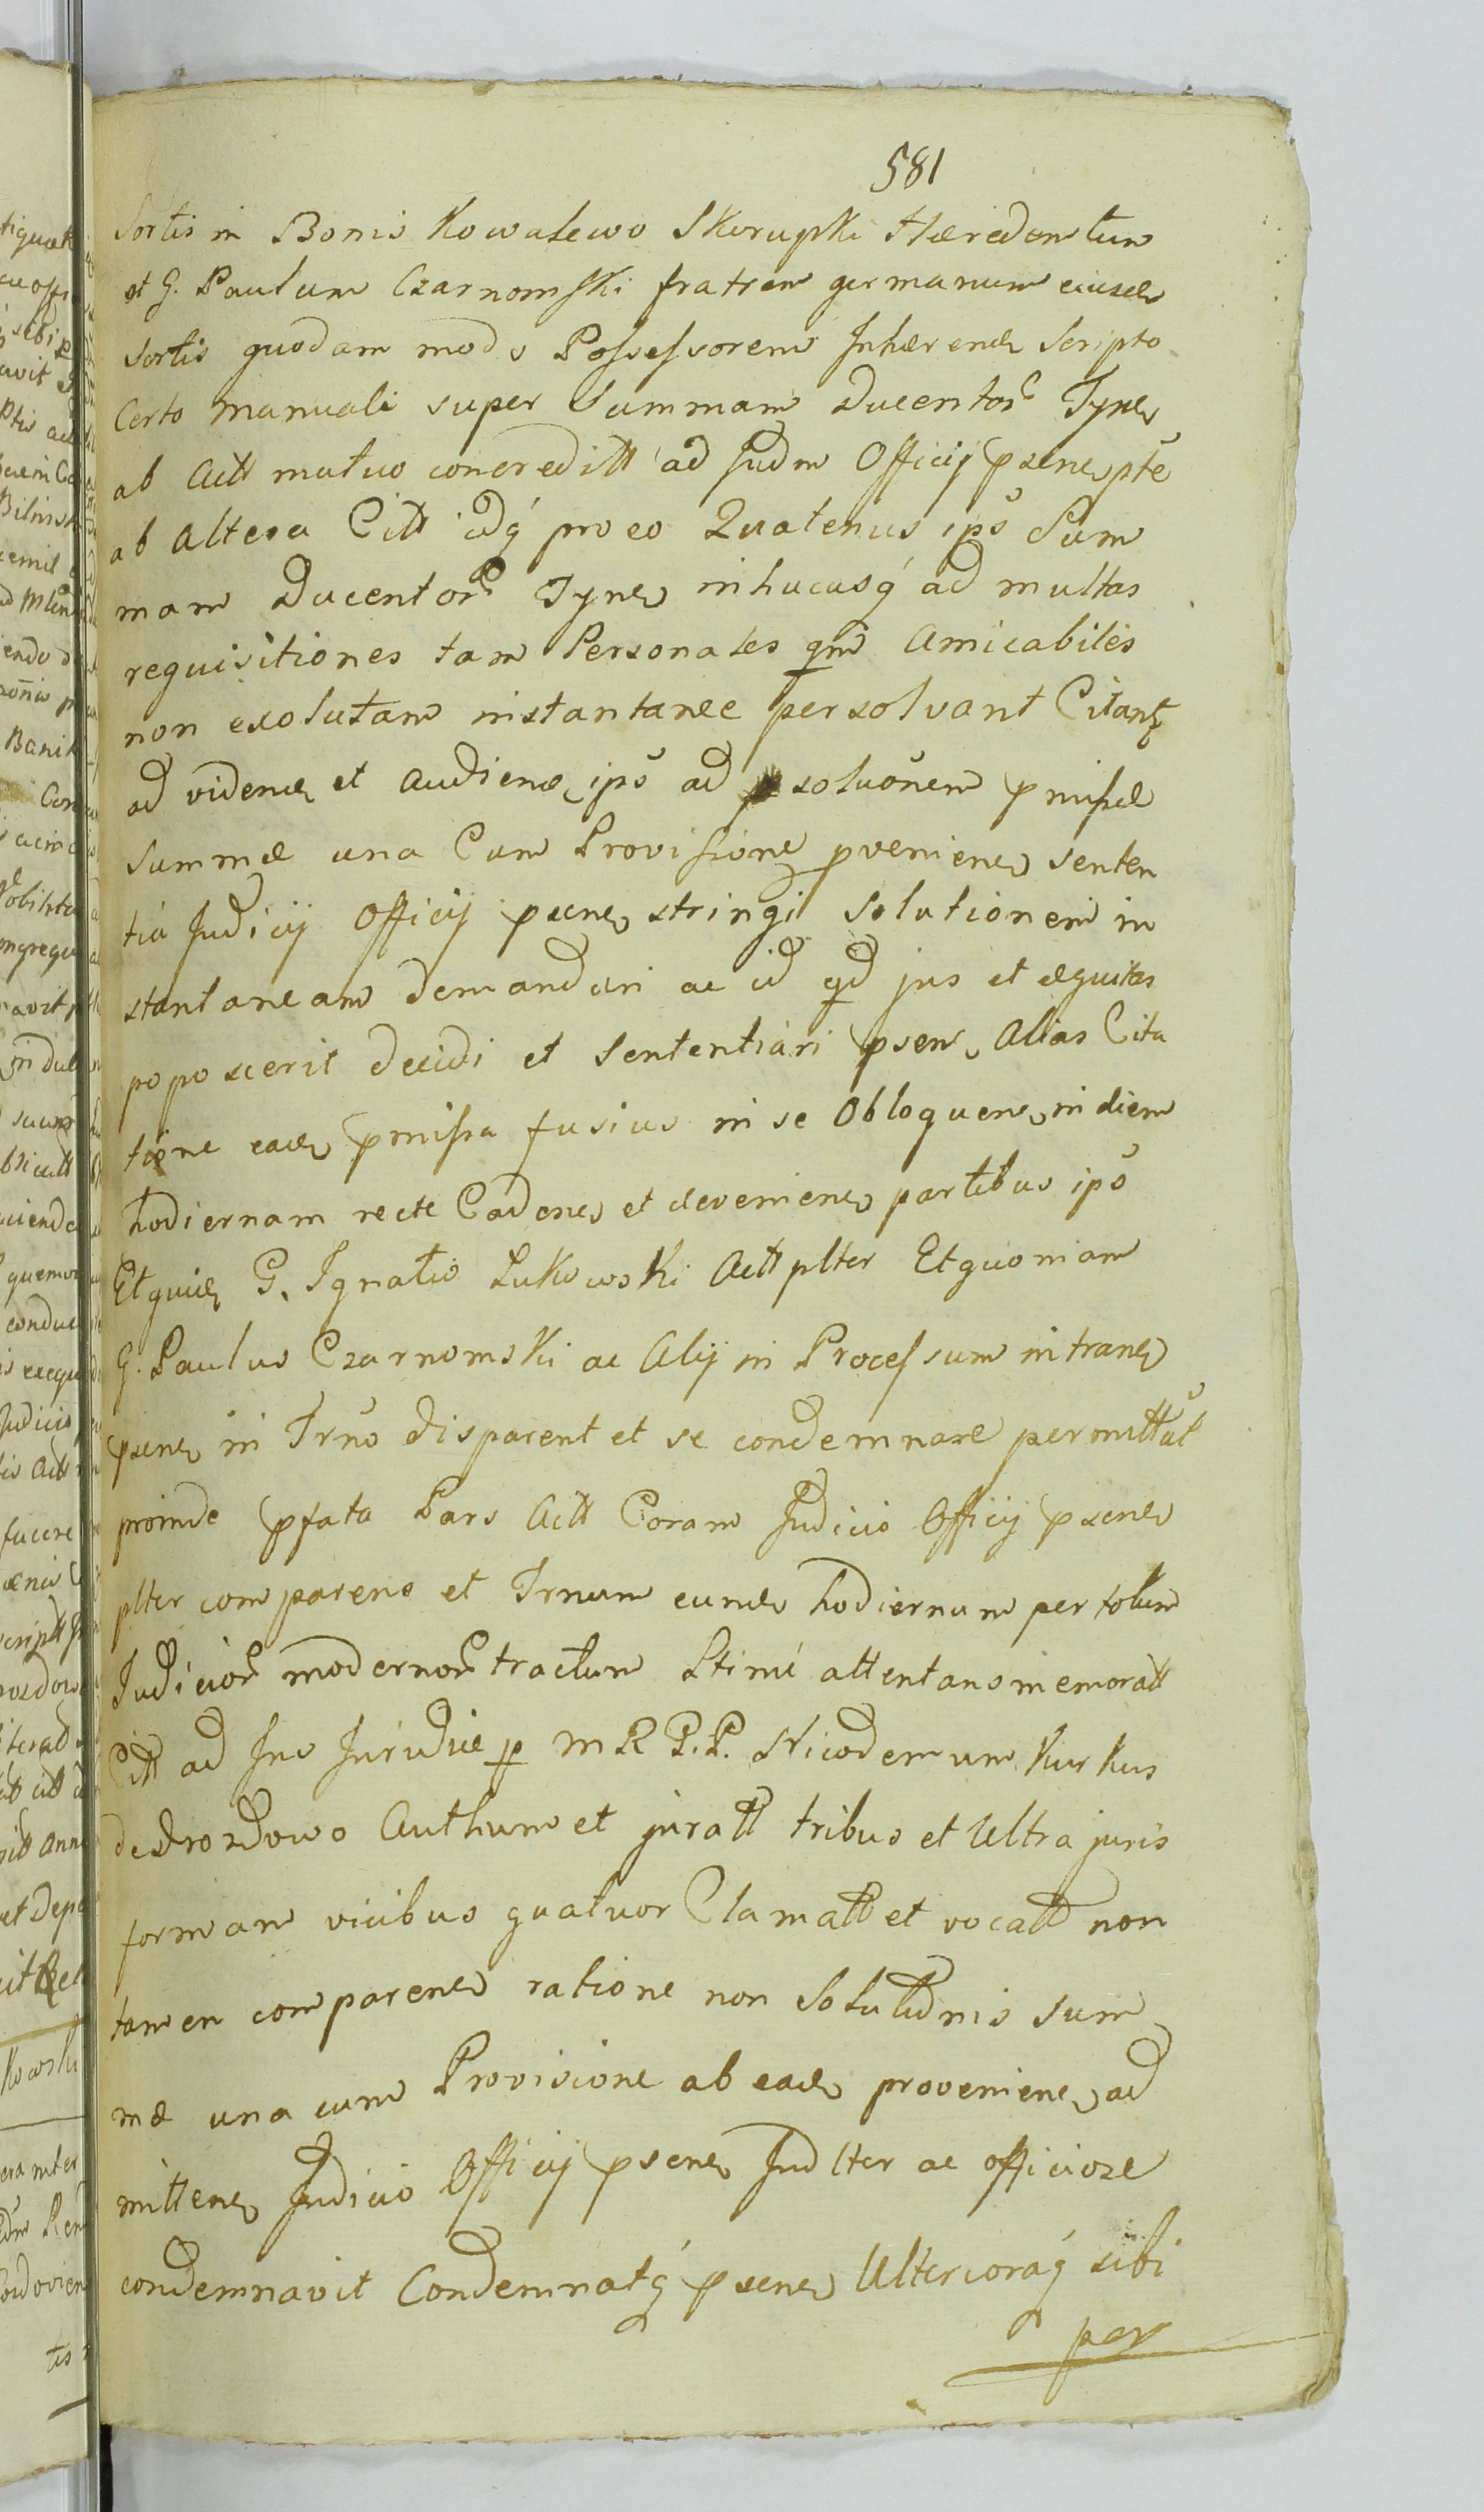 581
Sortis in Bonis Kowalewo Skurupki Hæredem tum
et G. Paulum Czarnomski fratrem germanum eiusd
sortis quodam modo Possessorem Inhærend Scripto
Certo manuali super Summam Ducentor Tynf
ab Actt mutuo concreditt ad Judm Officij psens pte
ab altera Citt idq́ pro eo Quatenus ips̃ Sum
mam Ducentor Tynf inhucusq́ ad multas
requisitiones tam Personales qm̃ Amicabiles
non exolutam instantanee persolvant Citant
ad videnď et Audienď ips̃ ad solutõnem pmissæ
Summæ una Cum Provisione pveniens senten
tia Judicij Officij psens stringi Solutionem in
stantaneam demandari ac id qd jus et æquitas
poposcerit decidi et Sententiari psens Alias Cita
tione ead pmissa fusius in se Obloquens in diem
hodiernam recte Cadens et deveniens partibus ips̃
Et quid G. Ignatio Lukowski Actt plter Et quoniam
G. Paulus Czarnomski ac Alij in Processum intrans
psens in Trno disparent et se condemnare permittũt
proinde pfata Pars Actt Coram Judicio Officij psens
plter comparens et Trnum eund hodiernum per totum
Judicior modernor tractum Ptime attentans memoratt
Citt ad Jus Juridice p M R P. P. Nicodemum Kurkus
de Drozdowo Authum et juratt tribus et Ultra juris
formam vicibus quatuor Clamatt et vocatt non
tamen comparens ratione non Solutionis sum
mæ una cum Provisione ab ead proveniens ad
mittens Judicio Officij psens Judlter ac officiose
condemnavit Condemnatq́ psens Ulterioraq́ sibi
per